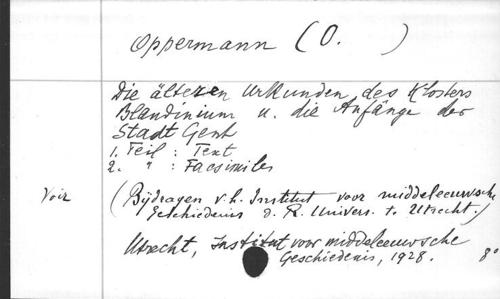 Oppermann (O. )
Die älteren Urkunden des Klosters
Blandinium u. die Anfänge der
Stadt Gent
1. Teil : Text
2. " : Facsimiles
Voir
(Bijdragen v. h. Institut voor middeleeuwsche
Geschiedenis d. R. Univers. te Utrecht.)
Utrecht, Institut voor middeleeuwsche
Geschiedenis, 1928. 8°